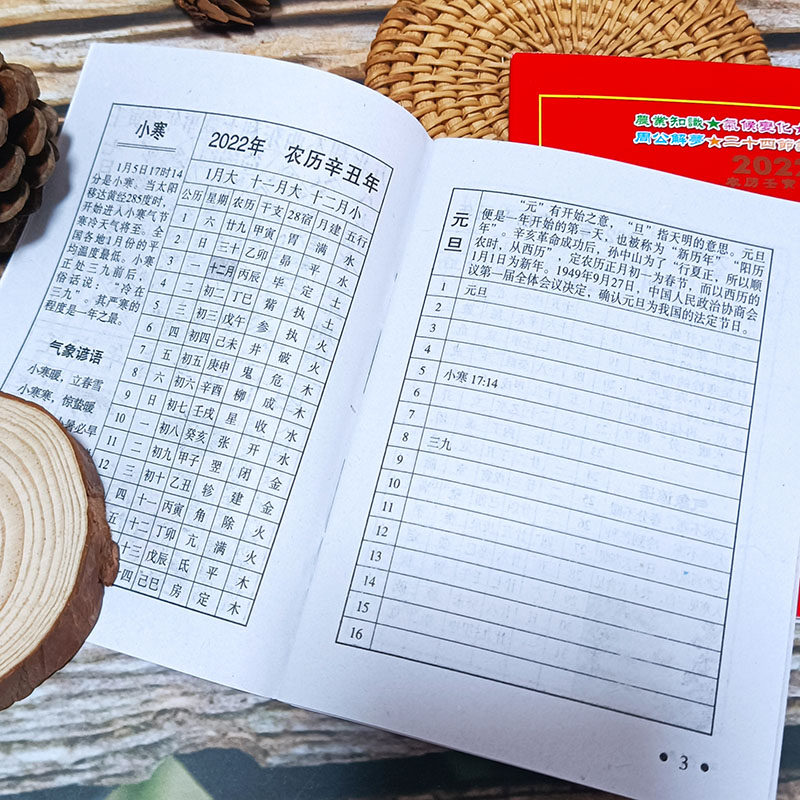 小寒
1月5日17时14
分是小寒。当太阳
移达黄经285度时,
开始进入小寒气节
寒冷天气将至。全
国各地1月份的平
均温度最低。小寒
正处三九前后,
俗话说:“冷在
三九”。其严寒的
程度是一年之最。
气象谚语
小寒暖,立春雪
小寒寒,惊蛰暖
暑必旱
2022年 农历辛丑年
1月大 十一月大 十二月小
公历 星期 农历 干支 28宿 月建 五行
1 六 廿九 甲寅 胃 满 水
2 日 三十 乙卯 昴 平 水
3 一 十二月 丙辰 毕 定 土
4 二 初二 丁巳 觜 执 土
5 三 初三 戊午 参 执 火
6 四 初四 己未 井 破 火
7 五 初五 庚申 鬼 危 木
8 六 初六 辛酉 柳 成 木
9 日 初七 壬戌 星 收 水
10 一 初八 癸亥 张 开 水
11 二 初九 甲子 翌 闭 金
12 三 初十 乙丑 轸 建 金
四 十一 丙寅 角 除 火
五 十二 丁卯 亢 满 火
十三 戊辰 氐 平 木
十四 己巳 房 定 木
元旦
“元”有开始之意,“旦”指天明的意思。元旦
便是一年开始的第一天,也被称为“新历年”“阳历
年”。辛亥革命成功后,孙中山为了“行夏正,所以顺
农时,从西历”,定农历正月初一为春节,而以西历的
1月1日为新年。1949年9月27日,中国人民政治协商会
议第一届全体会议决定,确认元旦为我国的法定节日。
1 元旦
2
3
4
5 小寒 17:14
6
7
8 三九
9
10
11
12
13
14
15
16
• 3 •
農業知識★氣候變化★
周公解夢★二十四節
2022
农历壬寅